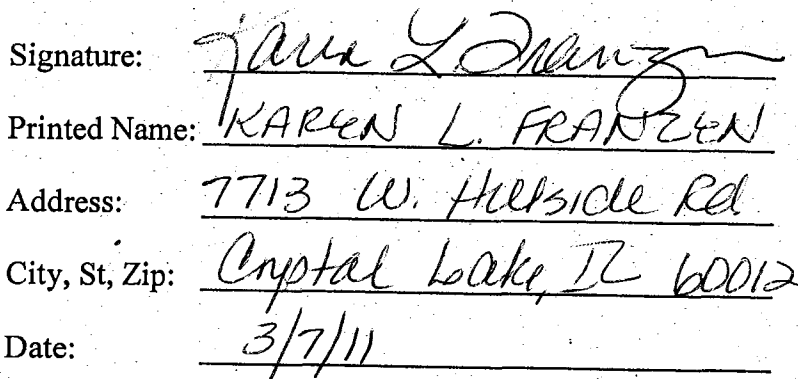 Signature: Karen L Franzen
Printed Name: KAREN L. FRANZEN
Address: 7713 W. Hillside Rd
City, St, Zip: Crystal Lake, IL 60012
Date: 3/7/11